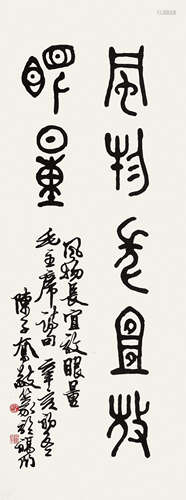 風物長宜放
眼量
風物長宜放眼量
毛主席詩句 辛亥初冬
陳子奮敬篆於福州